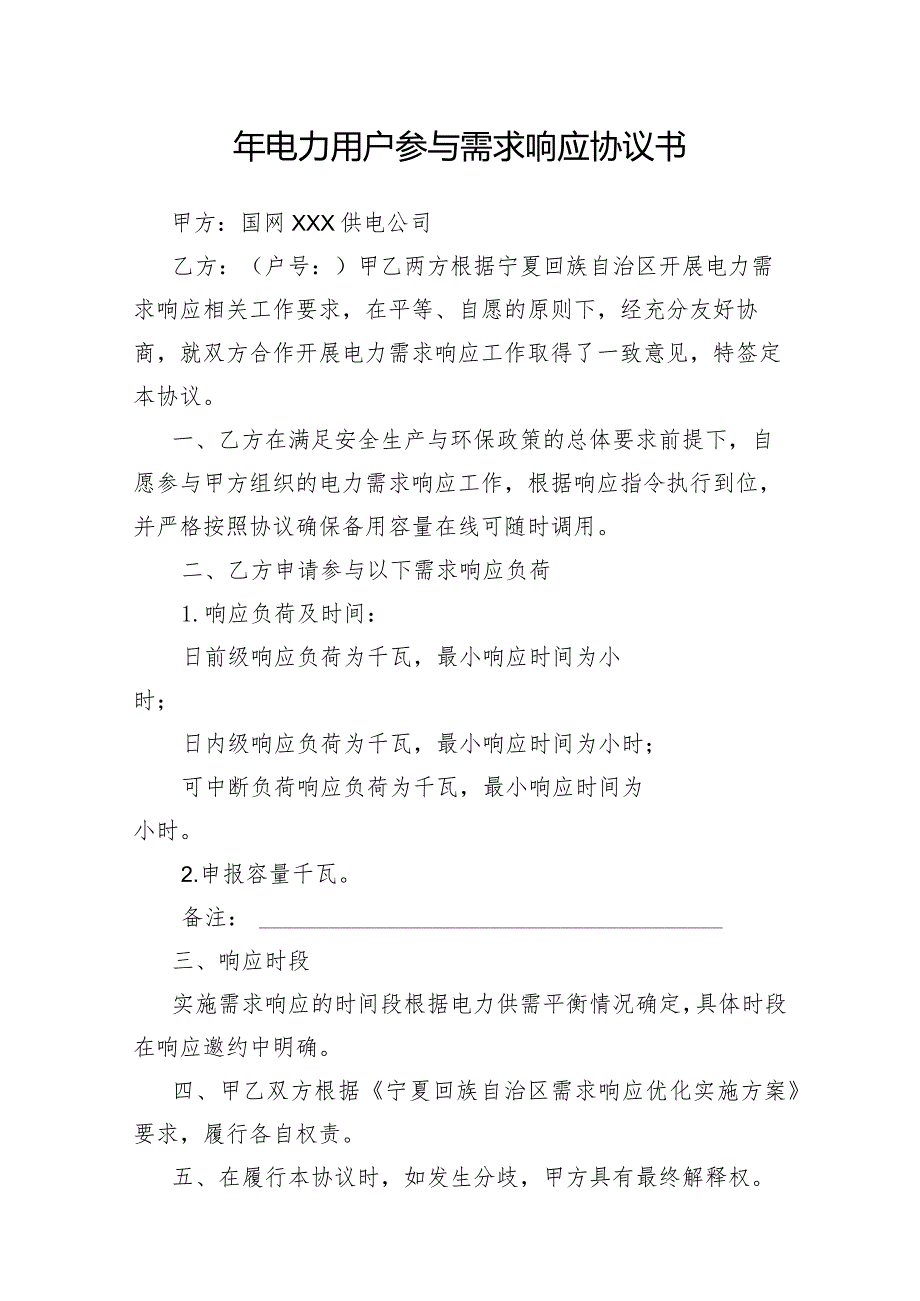 年电力用户参与需求响应协议书
甲方：国网 XXX 供电公司
乙方：（户号：）甲乙两方根据宁夏回族自治区开展电力需
求响应相关工作要求，在平等、自愿的原则下，经充分友好协
商，就双方合作开展电力需求响应工作取得了一致意见，特签定
本协议。
一、乙方在满足安全生产与环保政策的总体要求前提下，自
愿参与甲方组织的电力需求响应工作，根据响应指令执行到位，
并严格按照协议确保备用容量在线可随时调用。
二、乙方申请参与以下需求响应负荷
1. 响应负荷及时间：
日前级响应负荷为千瓦，最小响应时间为小
时；
日内级响应负荷为千瓦，最小响应时间为小时；
可中断负荷响应负荷为千瓦，最小响应时间为
小时。
2.申报容量千瓦。
备注：
三、响应时段
实施需求响应的时间段根据电力供需平衡情况确定，具体时段
在响应邀约中明确。
四、甲乙双方根据《宁夏回族自治区需求响应优化实施方案》
要求，履行各自权责。
五、在履行本协议时，如发生分歧，甲方具有最终解释权。